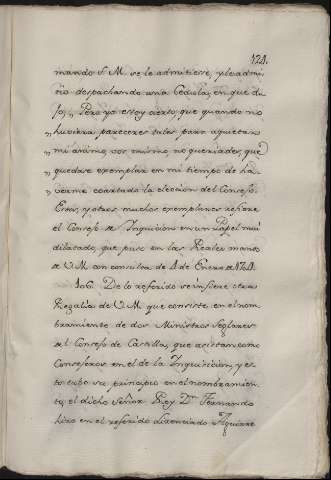 124.
mando S. M. se le admitiesse, y le admi-
tio despachando una Cedula, en que di-
jo, „ Pero yo estoy cierto, que quando no
„ huviera pareceres tales, para aquietar
„ mi animo, vos mismo no querriades, que
„ quedase exemplar en mi tiempo de ha-
„ verme coartado la eleccion del Consejo.
Estos, y otros muchos exemplares refiere
el Consejo de Inquicicion en un Papel mui
dilatado, que puso en las Reales manos
de V. M. con consulta de 4 de Enero de
106. De lo referido se infiere otra
Regalia de V. M. que consiste en el nom-
bramiento de dos Ministros Seglares
del Consejo de Castilla, que asisten como
Consejeros en el de la Inquicicion, y es-
to tubo su principio en el nombramien-
to, q el dicho Señor Rey Dn. Fernando
hizo en el referido Licenciado Aguirre